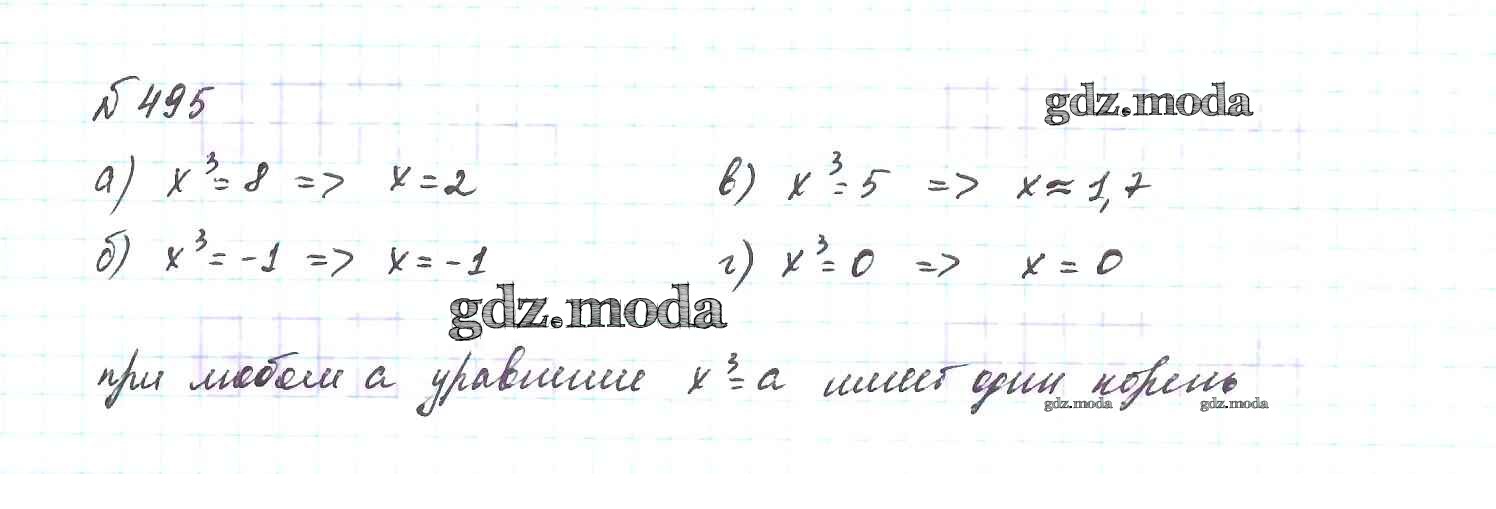 № 495
gdz.moda
а) x³ = 8 => x = 2
в) x³ = 5 => x ≈ 1,7
б) x³ = -1 => x = -1
г) x³ = 0 => x = 0
gdz.moda
при любом а уравнение x³ = a имеет один корень
gdz.moda gdz.moda